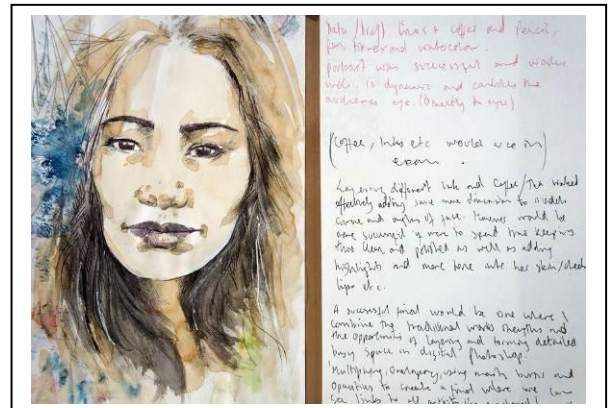 and coffee and pencil,
and watercolour.
portrait was successful and works
well. Is dynamic and controls the
audiences eye. (Directly to eyes)
(Coffee, Inks etc would use in
exam.
Layering different Ink and Coffee/Tea worked
effectively adding some more dimension to models
and angles of face. However would be
more successful if were to spend time keeping
this clean and polished as well as adding
highlights and more tone into her skin/cheek
lips etc.
A successful final would be one where I
combine the traditional works strengths and
the opportunities of layering and forming detailed
busy space in digital photoshop.
Multiplying, overlaying, using burns and
opacities to create a final where we can
see links to all